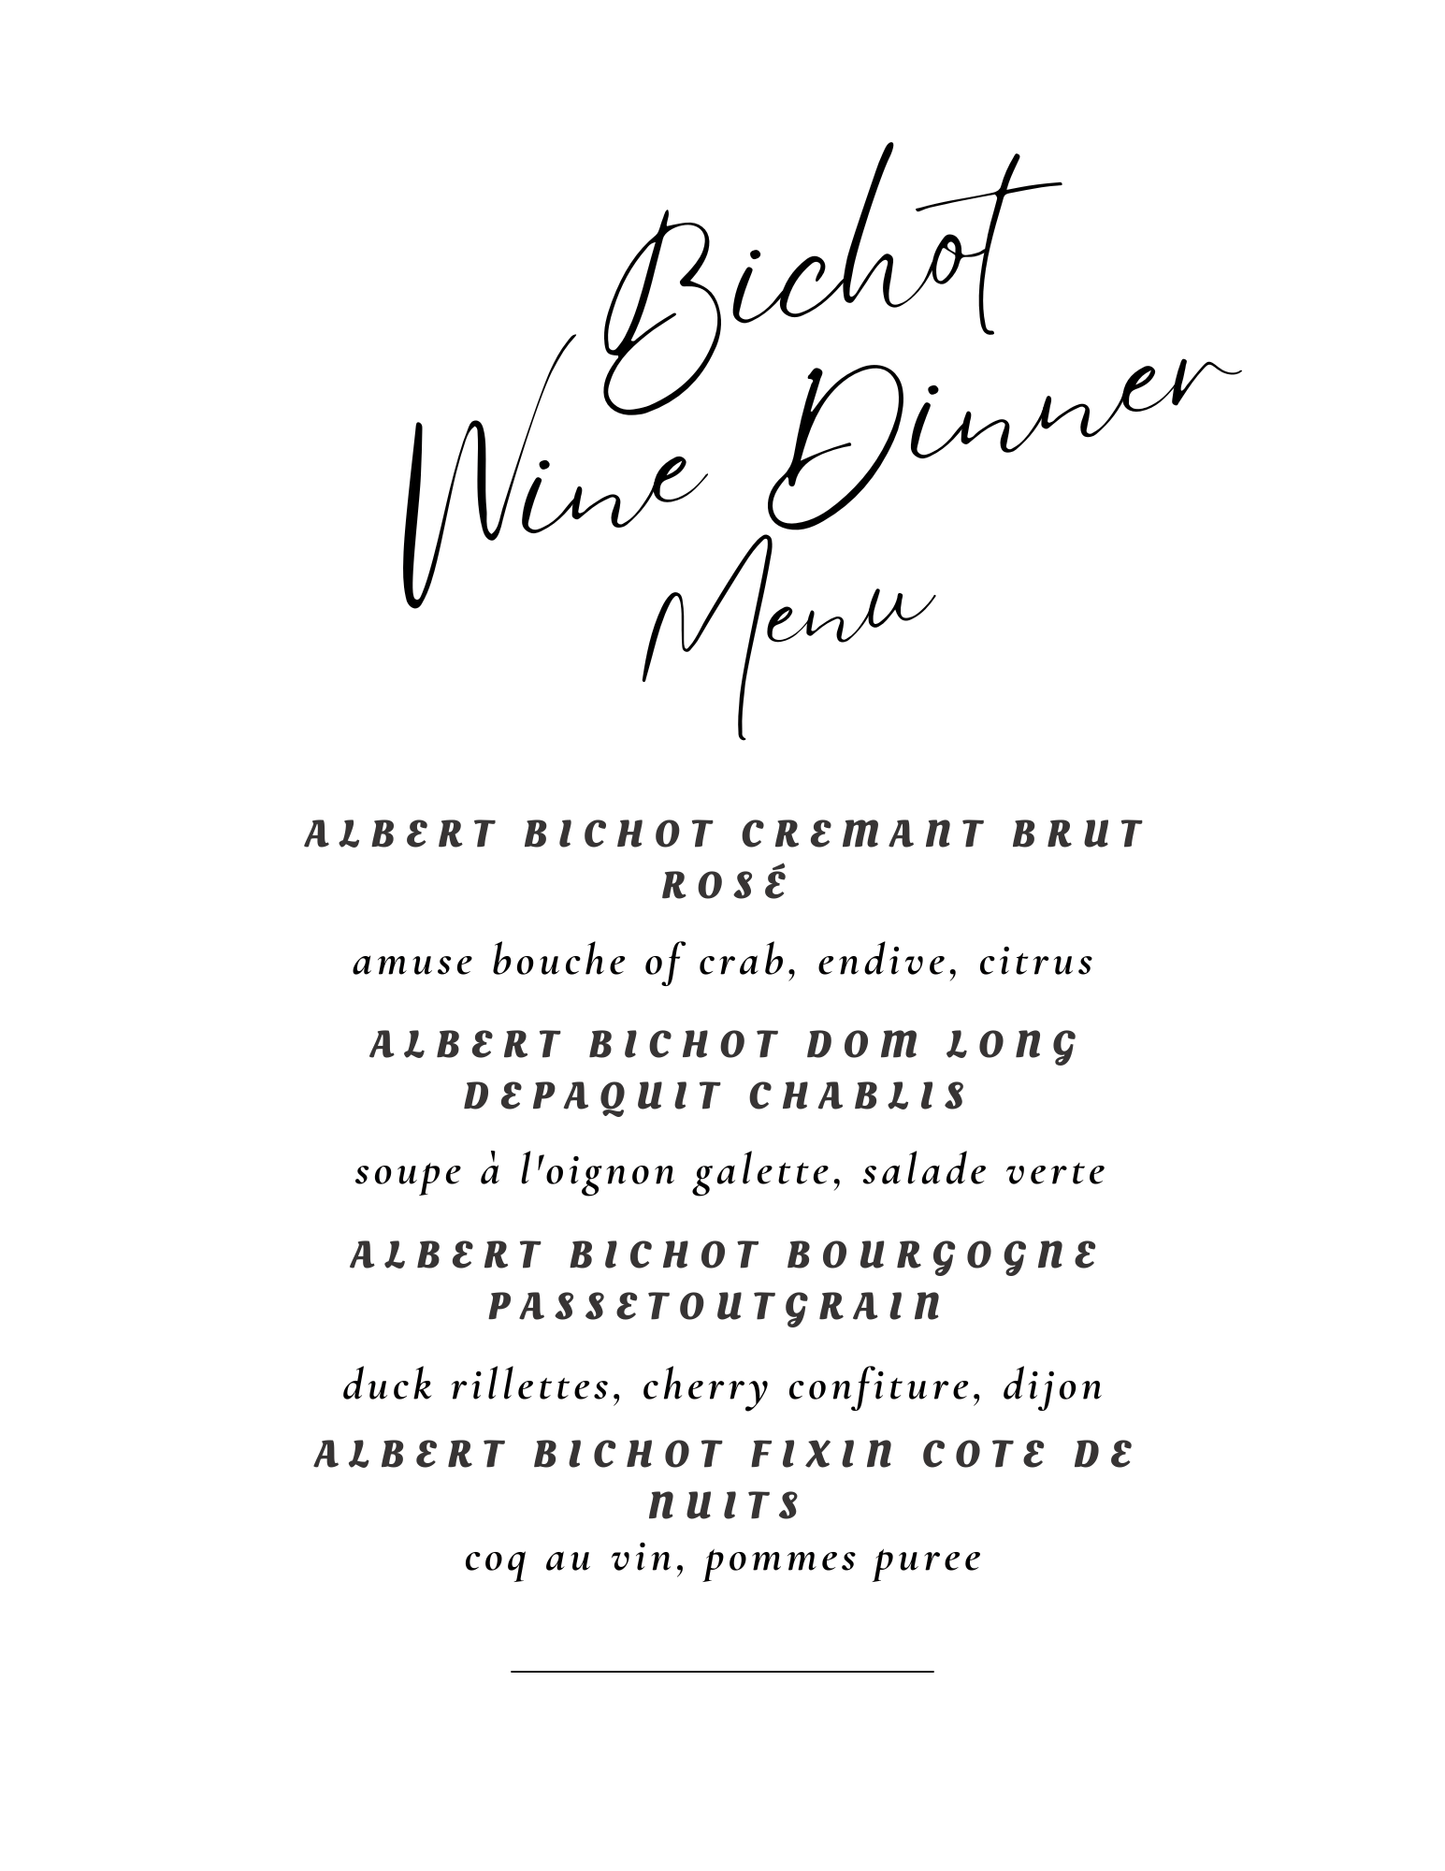 Bichot
Wine Dinner
Menu
ALBERT BICHOT CREMANT BRUT
ROSÉ
amuse bouche of crab, endive, citrus
ALBERT BICHOT DOM LONG
DEPAQUIT CHABLIS
soupe à l'oignon galette, salade verte
ALBERT BICHOT BOURGOGNE
PASSETOUTGRAIN
duck rillettes, cherry confiture, dijon
ALBERT BICHOT FIXIN COTE DE
NUITS
coq au vin, pommes puree